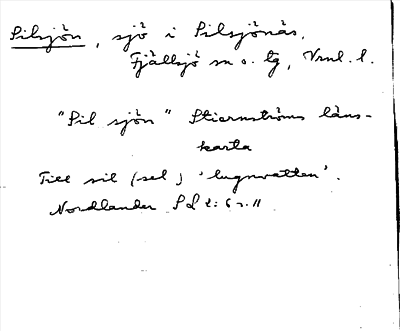 Silsjön, sjö i Silsjönäs,
Fjällsjö sn o. tg, Vrnl. l.
"Sil sjön" Stiernströms läns-
karta
Till sil (sel) 'lugnvatten'.
Nordlander S L 2: 6 s. 11